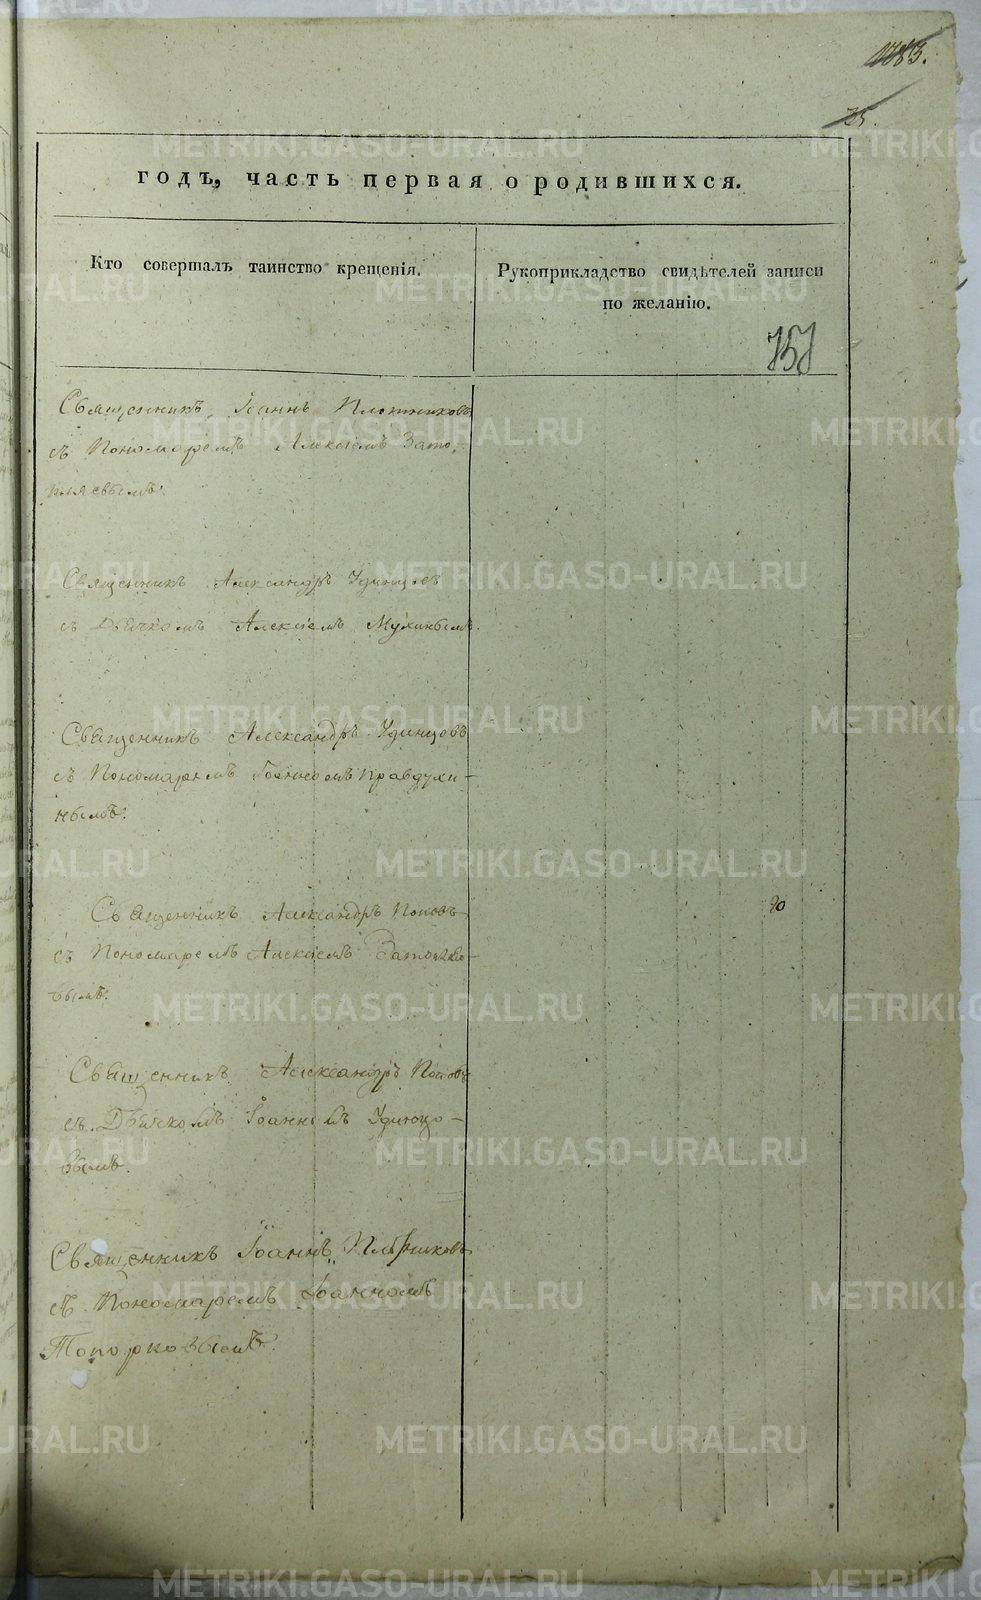 1783.
25.
годъ, часть первая о родившихся.
Кто совершалъ таинство крещенія.
Рукоприкладство свидѣтелей записи
по желанію.
757
Священникъ Іоаннъ Плотниковъ
съ Пономаремъ Алексіемъ Зато-
пляевымъ.
Священникъ Александръ Удинцовъ
съ Дьячкомъ Алексіемъ Мухинымъ.
Священникъ Александръ Удинцовъ
съ Пономаремъ Іоанномъ Правдухи-
нымъ.
Священникъ Александръ Поповъ
20
съ Пономаремъ Алексіемъ
вымъ.
Священникъ Александръ Поповъ
съ Дьячкомъ Іоанномъ Удинцо-
вымъ.
Священникъ Іоаннъ Плотниковъ
съ Пономаремъ Іоанномъ
Топорковымъ.
METRIKI.GASO-URAL.RU